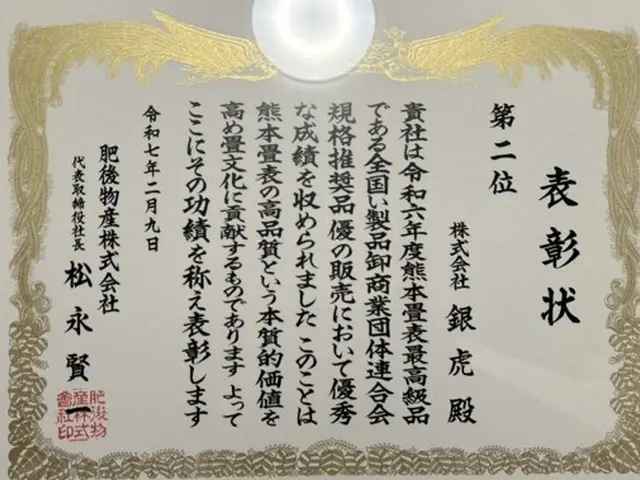 表彰状
第二位
株式会社 銀虎 殿
貴社は令和六年度熊本畳表最高級品
である全国い製品卸商業団体連合会
規格推奨品優の販売において優秀
な成績を収められました このことは
熊本畳表の高品質という本質的価値を
高め畳文化に貢献するものであります よって
ここにその功績を称え表彰します
令和七年二月九日
肥後物産株式会社
代表取締役社長 松永賢一
肥後物産株式会社印